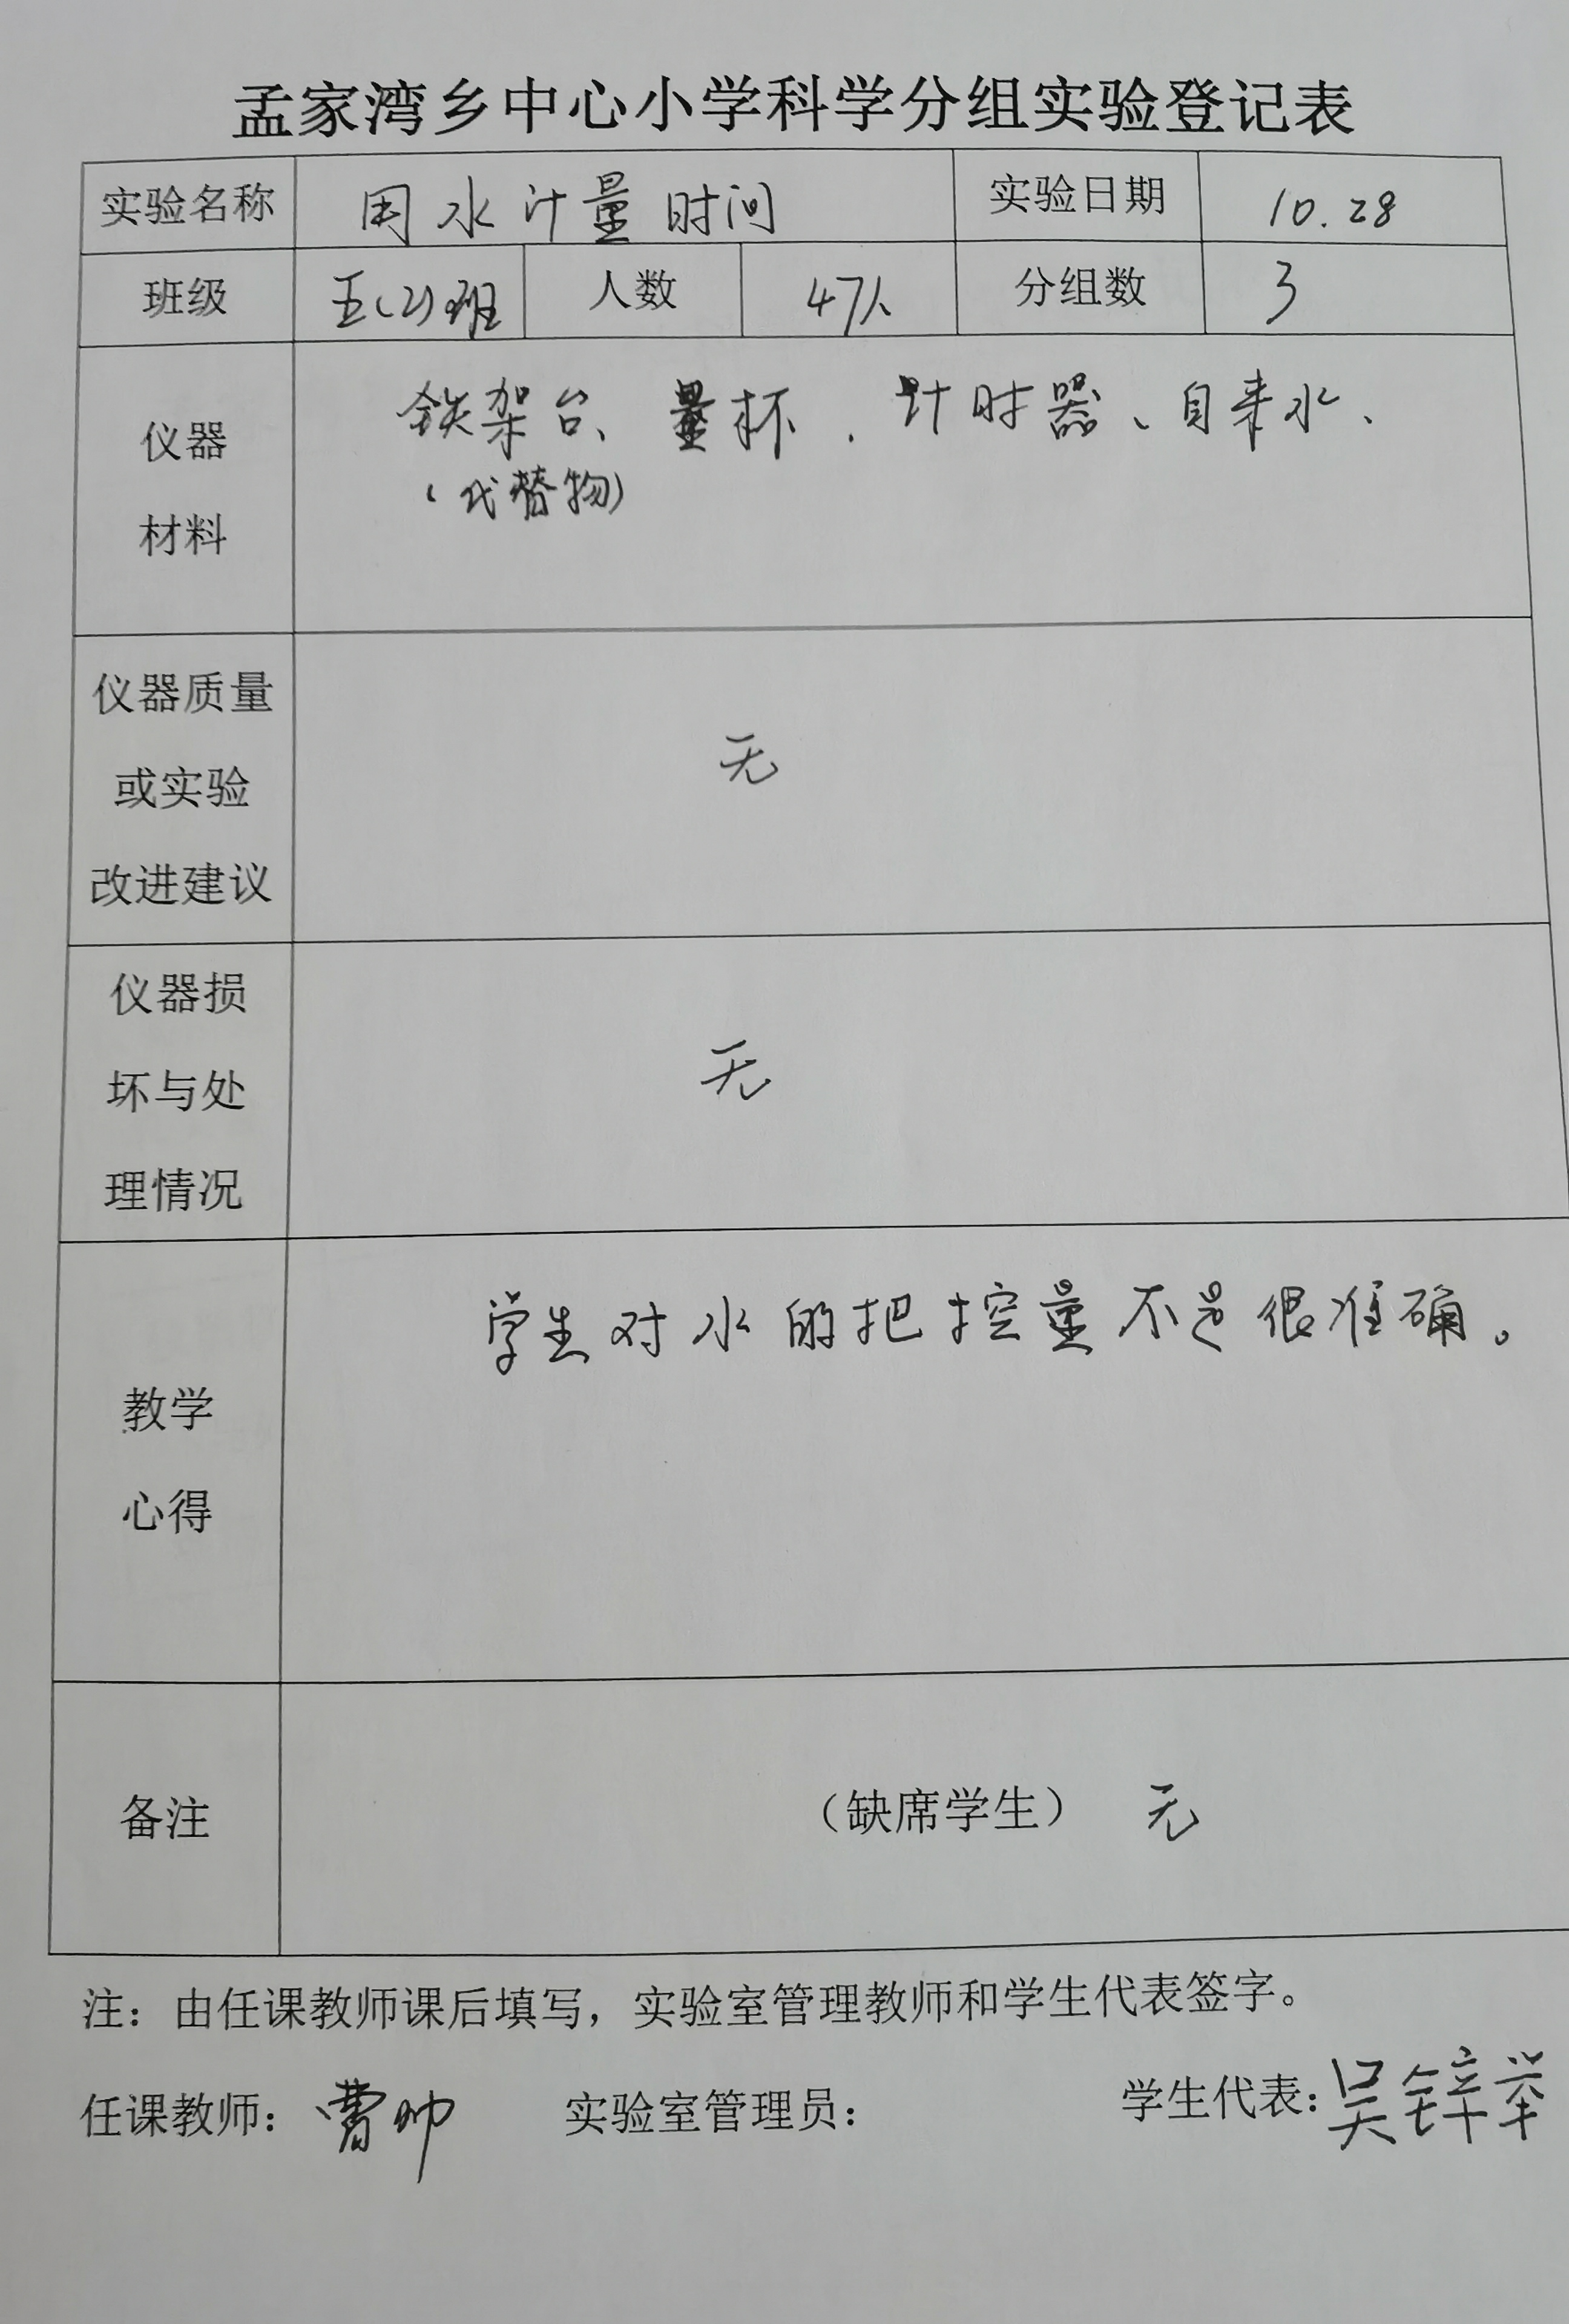 孟家湾乡中心小学科学分组实验登记表
实验名称 用水计量时间 实验日期 10.28
班级 五(2)班 人数 47人 分组数 3
仪器
材料
铁架台、量杯、计时器、自来水、
(代替物)
仪器质量
或实验
改进建议
无
仪器损
坏与处
理情况
无
教学
心得
学生对水的把控量不是很准确。
备注 （缺席学生） 无
注：由任课教师课后填写，实验室管理教师和学生代表签字。
任课教师：曹帅 实验室管理员： 学生代表：吴锌举